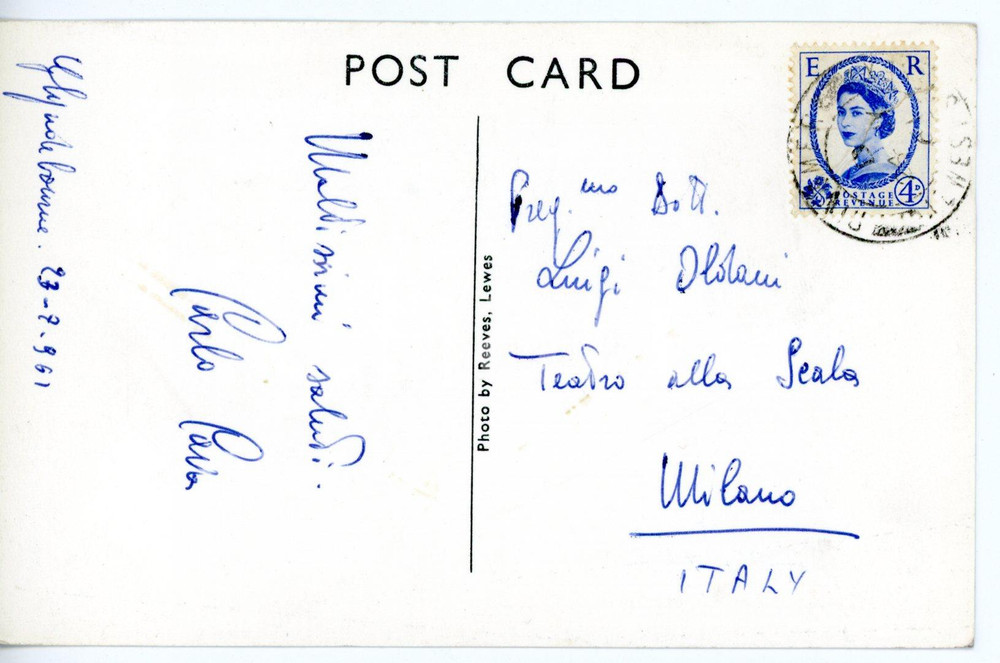 POST CARD
E R
POSTAGE
REVENUE
4D
Glyndebourne. 23-7-961
Moltissimi saluti.
Carlo
Photo by Reeves, Lewes
Preg.mo Dott.
Luigi Oldani
Teatro alla Scala
Milano
ITALY